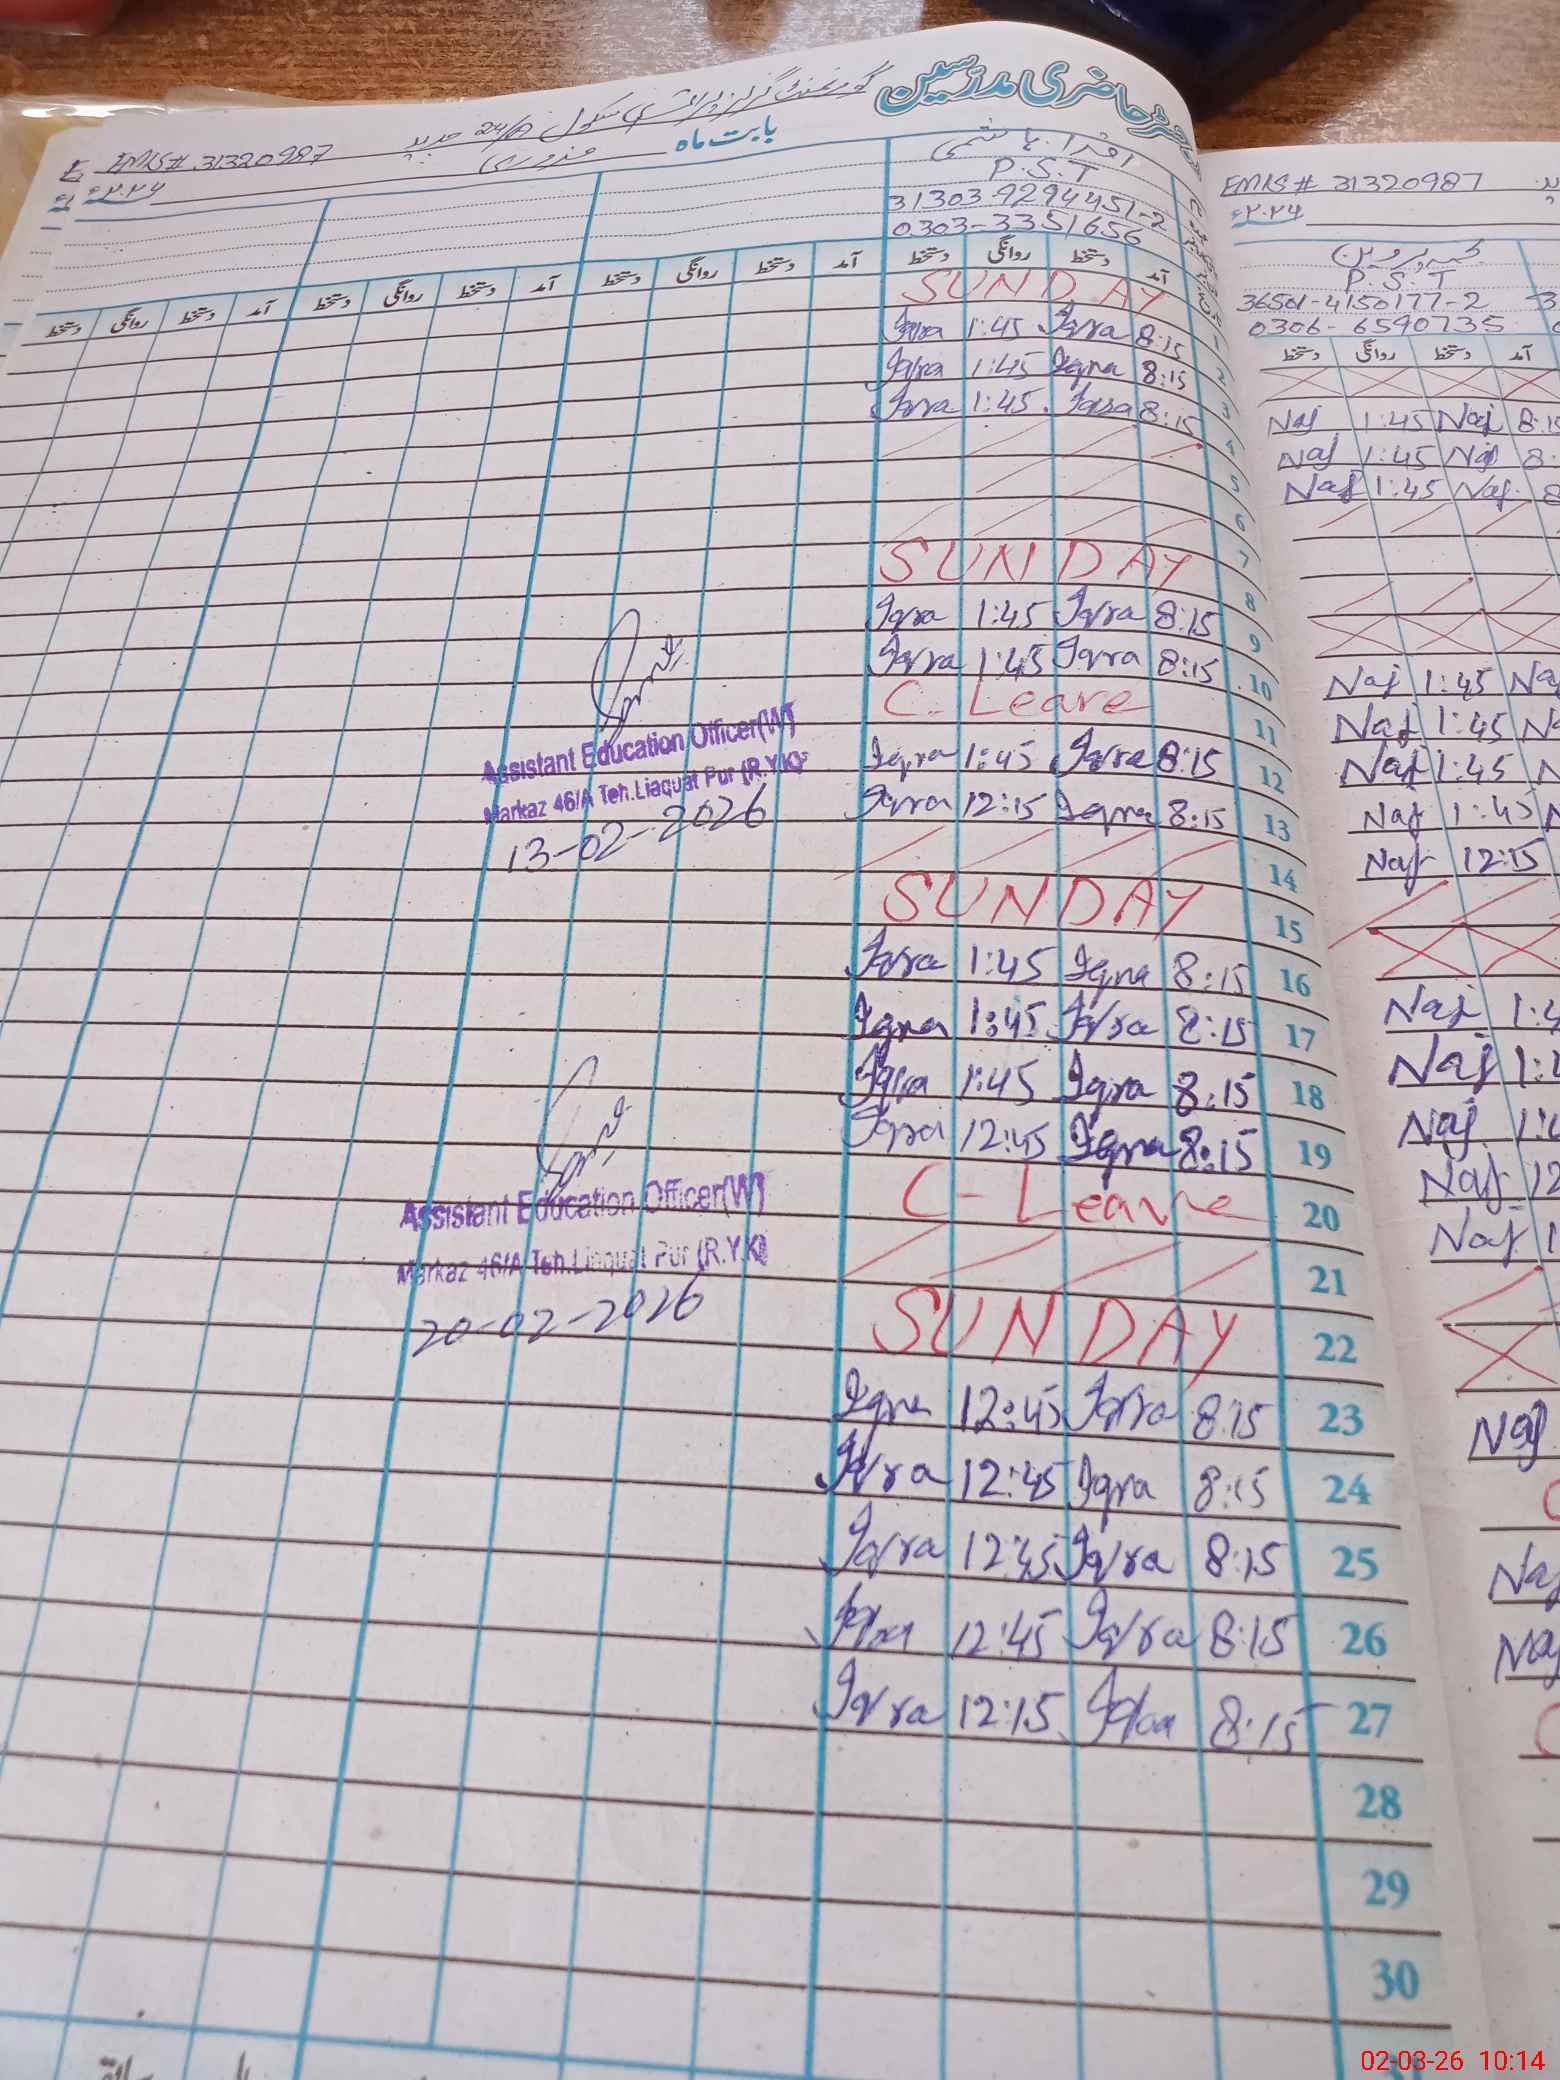 رجسٹر حاضری مدرسین
گورنمنٹ گرلز پرائمری سکول 24/A جدید EMIS# 31320987
بابت ماہ فروری ۲۰۲۶ء
اقراء ہاشمی
P.S.T
31303-9294451-2
0303-3351656
آمد دستخط روانگی دستخط آمد دستخط روانگی دستخط آمد دستخط روانگی دستخط
SUNDAY 1
Iqra 1:45 Iqra 8:15 2
Iqra 1:45 Iqra 8:15 3
Iqra 1:45 Iqra 8:15 4
5
6
7
SUNDAY 8
Iqra 1:45 Iqra 8:15 9
Iqra 1:45 Iqra 8:15 10
C-Leave 11
Iqra 1:45 Iqra 8:15 12
Iqra 12:15 Iqra 8:15 13
14
SUNDAY 15
Iqra 1:45 Iqra 8:15 16
Iqra 1:45 Iqra 8:15 17
Iqra 1:45 Iqra 8:15 18
Iqra 12:45 Iqra 8:15 19
C-Leave 20
21
SUNDAY 22
Iqra 12:45 Iqra 8:15 23
Iqra 12:45 Iqra 8:15 24
Iqra 12:45 Iqra 8:15 25
Iqra 12:45 Iqra 8:15 26
Iqra 12:15 Iqra 8:15 27
28
29
30
Assistant Education Officer(W)
Markaz 46/A Teh.Liaquat Pur (R.Y.K)
13-02-2026
Assistant Education Officer(W)
Markaz 46/A Teh.Liaquat Pur (R.Y.K)
20-02-2026
EMIS# 31320987
P.S.T
36501-4150177-2
0306-6590735
آمد دستخط روانگی دستخط
Naj 1:45 Naj 8:15
Naj 1:45 Naj 8:
Naj 1:45 Naj 8
Naj 1:45 Na
Naj 1:45 N
Naj 1:45 N
Naj 1:45 N
Naj 12:15
Naj 1:4
Naj 1:
Naj 1:4
Naj 12
Naj 1
Naj
Naj
Naj
02-03-26 10:14